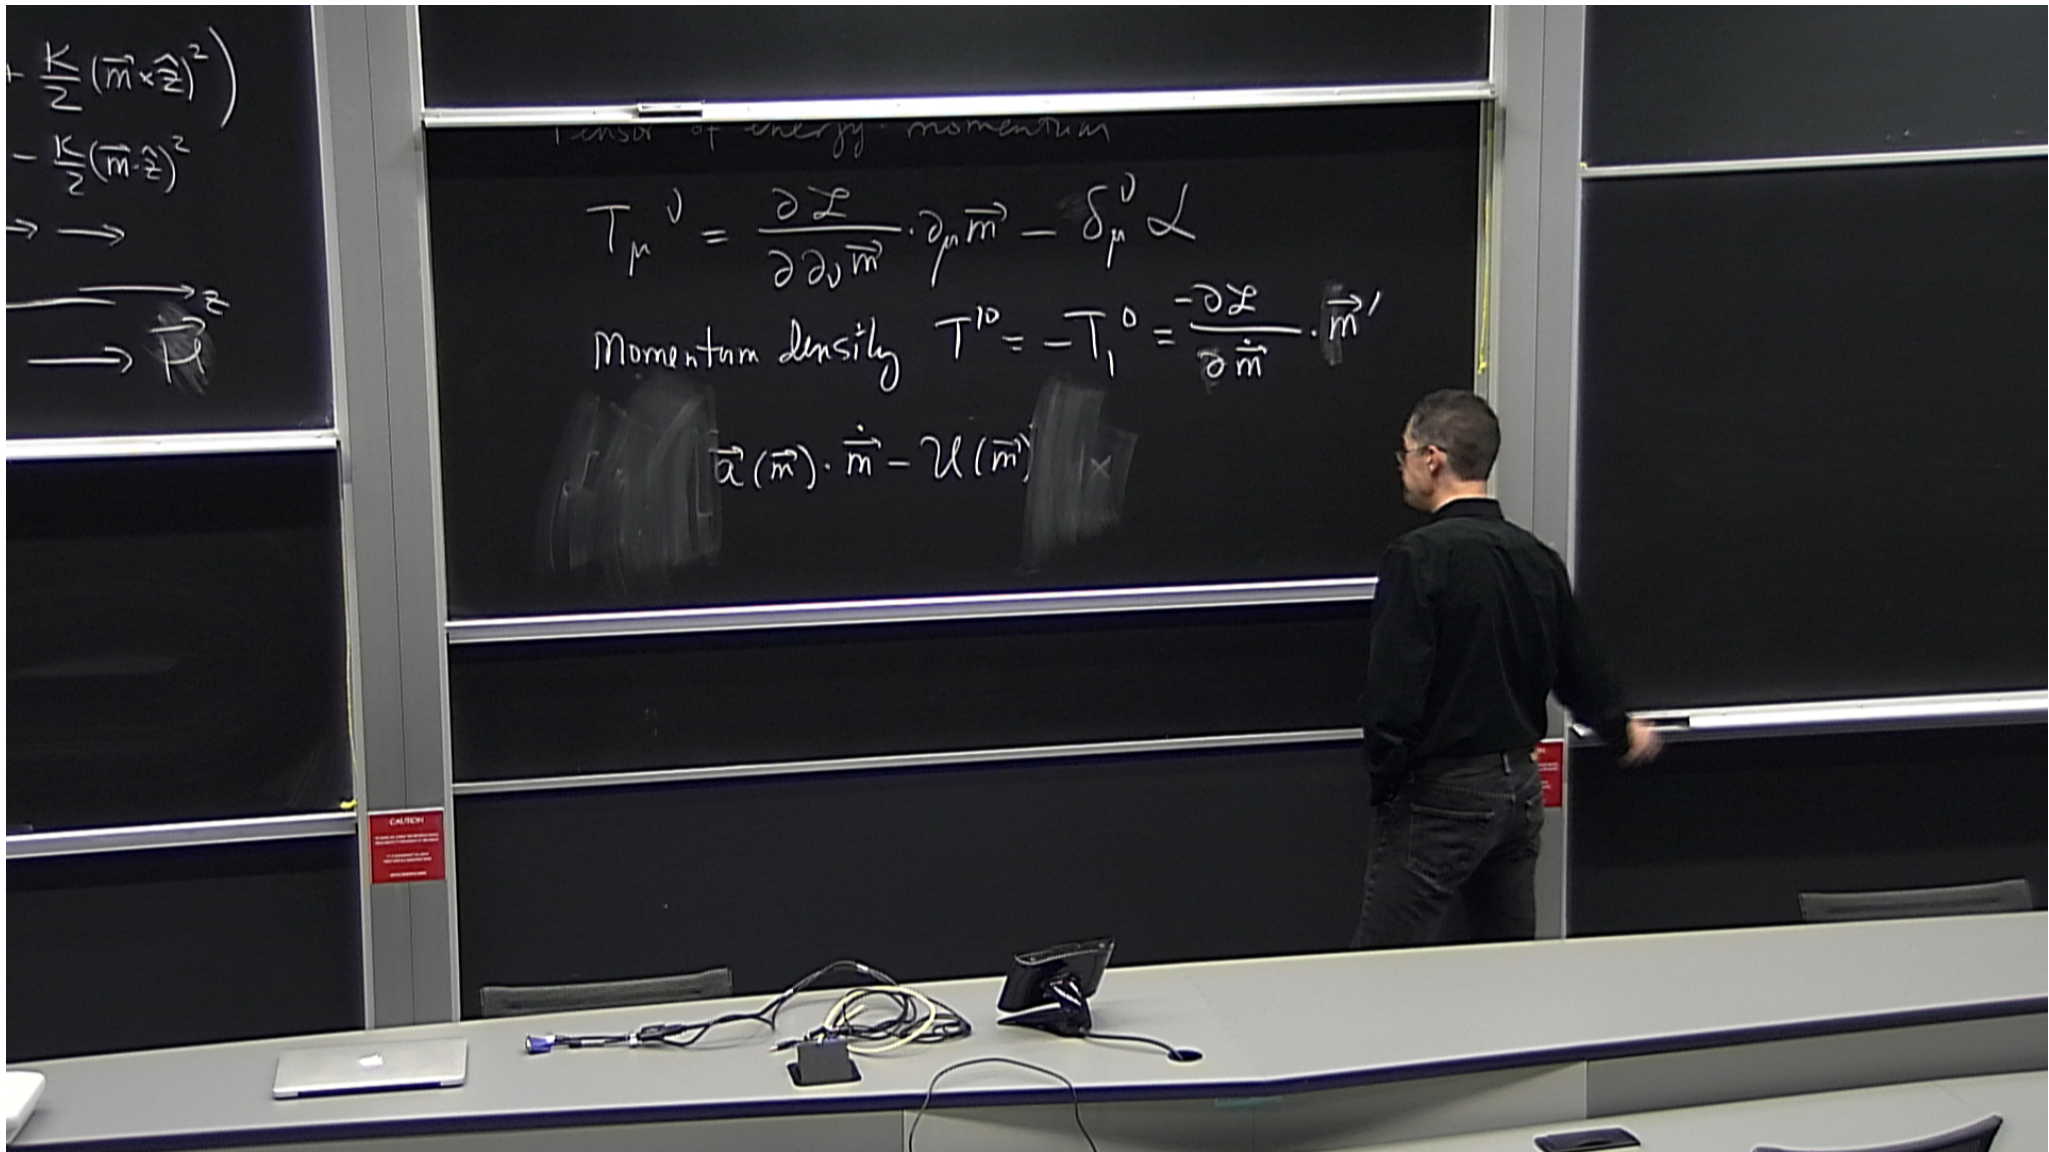 + K/2 (m⃗ × ẑ)² )
- K/2 (m⃗ · ẑ)²
→ →
→ z
→ μ⃗
Tensor of energy-momentum
T_μ^ν = ∂ℒ/∂∂_ν m⃗ · ∂_μ m⃗ − δ_μ^ν ℒ
Momentum density T¹⁰ = −T₁⁰ = −∂ℒ/∂ṁ⃗ · m⃗′
a⃗(m⃗) · ṁ⃗ − U(m⃗)
CAUTION